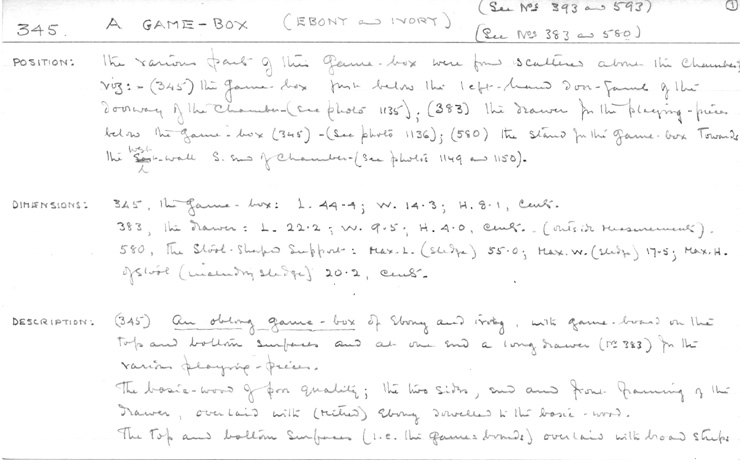 (See Nos 393 and 593) ①
345. A GAME-BOX (EBONY and IVORY) (See Nos 383 and 580)
POSITION: The various parts of this Game-box were found scattered about the Chamber,
viz:- (345) the Game-box just below the left-hand door-jamb of the
doorway of the Chamber-(see photo 1135); (383) the drawer for the playing-pieces
below the game-box (345) -(See photo 1136); (580) the stand for the Game-box towards
the West-wall S. end of Chamber-(see photos 1149 and 1150).
DIMENSIONS: 345, the Game-box: L. 44·4; W. 14·3; H. 8·1, cents.
383, the drawer: L. 22·2; W. 9·5; H. 4·0, cents. (outside measurements).
580, the Stool-shaped Support: Max. L. (sledge) 55·0; Max. W. (sledge) 17·5; Max. H.
of stool (including sledge) 20·2, cents.
DESCRIPTION: (345) An oblong game-box of Ebony and ivory, with game-board on the
top and bottom surfaces and at one end a long drawer (No 383) for the
various playing-pieces.
The basic-wood of poor quality; the two sides, end and front framing of the
drawer, overlaid with (mitred) Ebony dowelled to the basic-wood.
The top and bottom surfaces (i.e. the games-boards) overlaid with broad strips